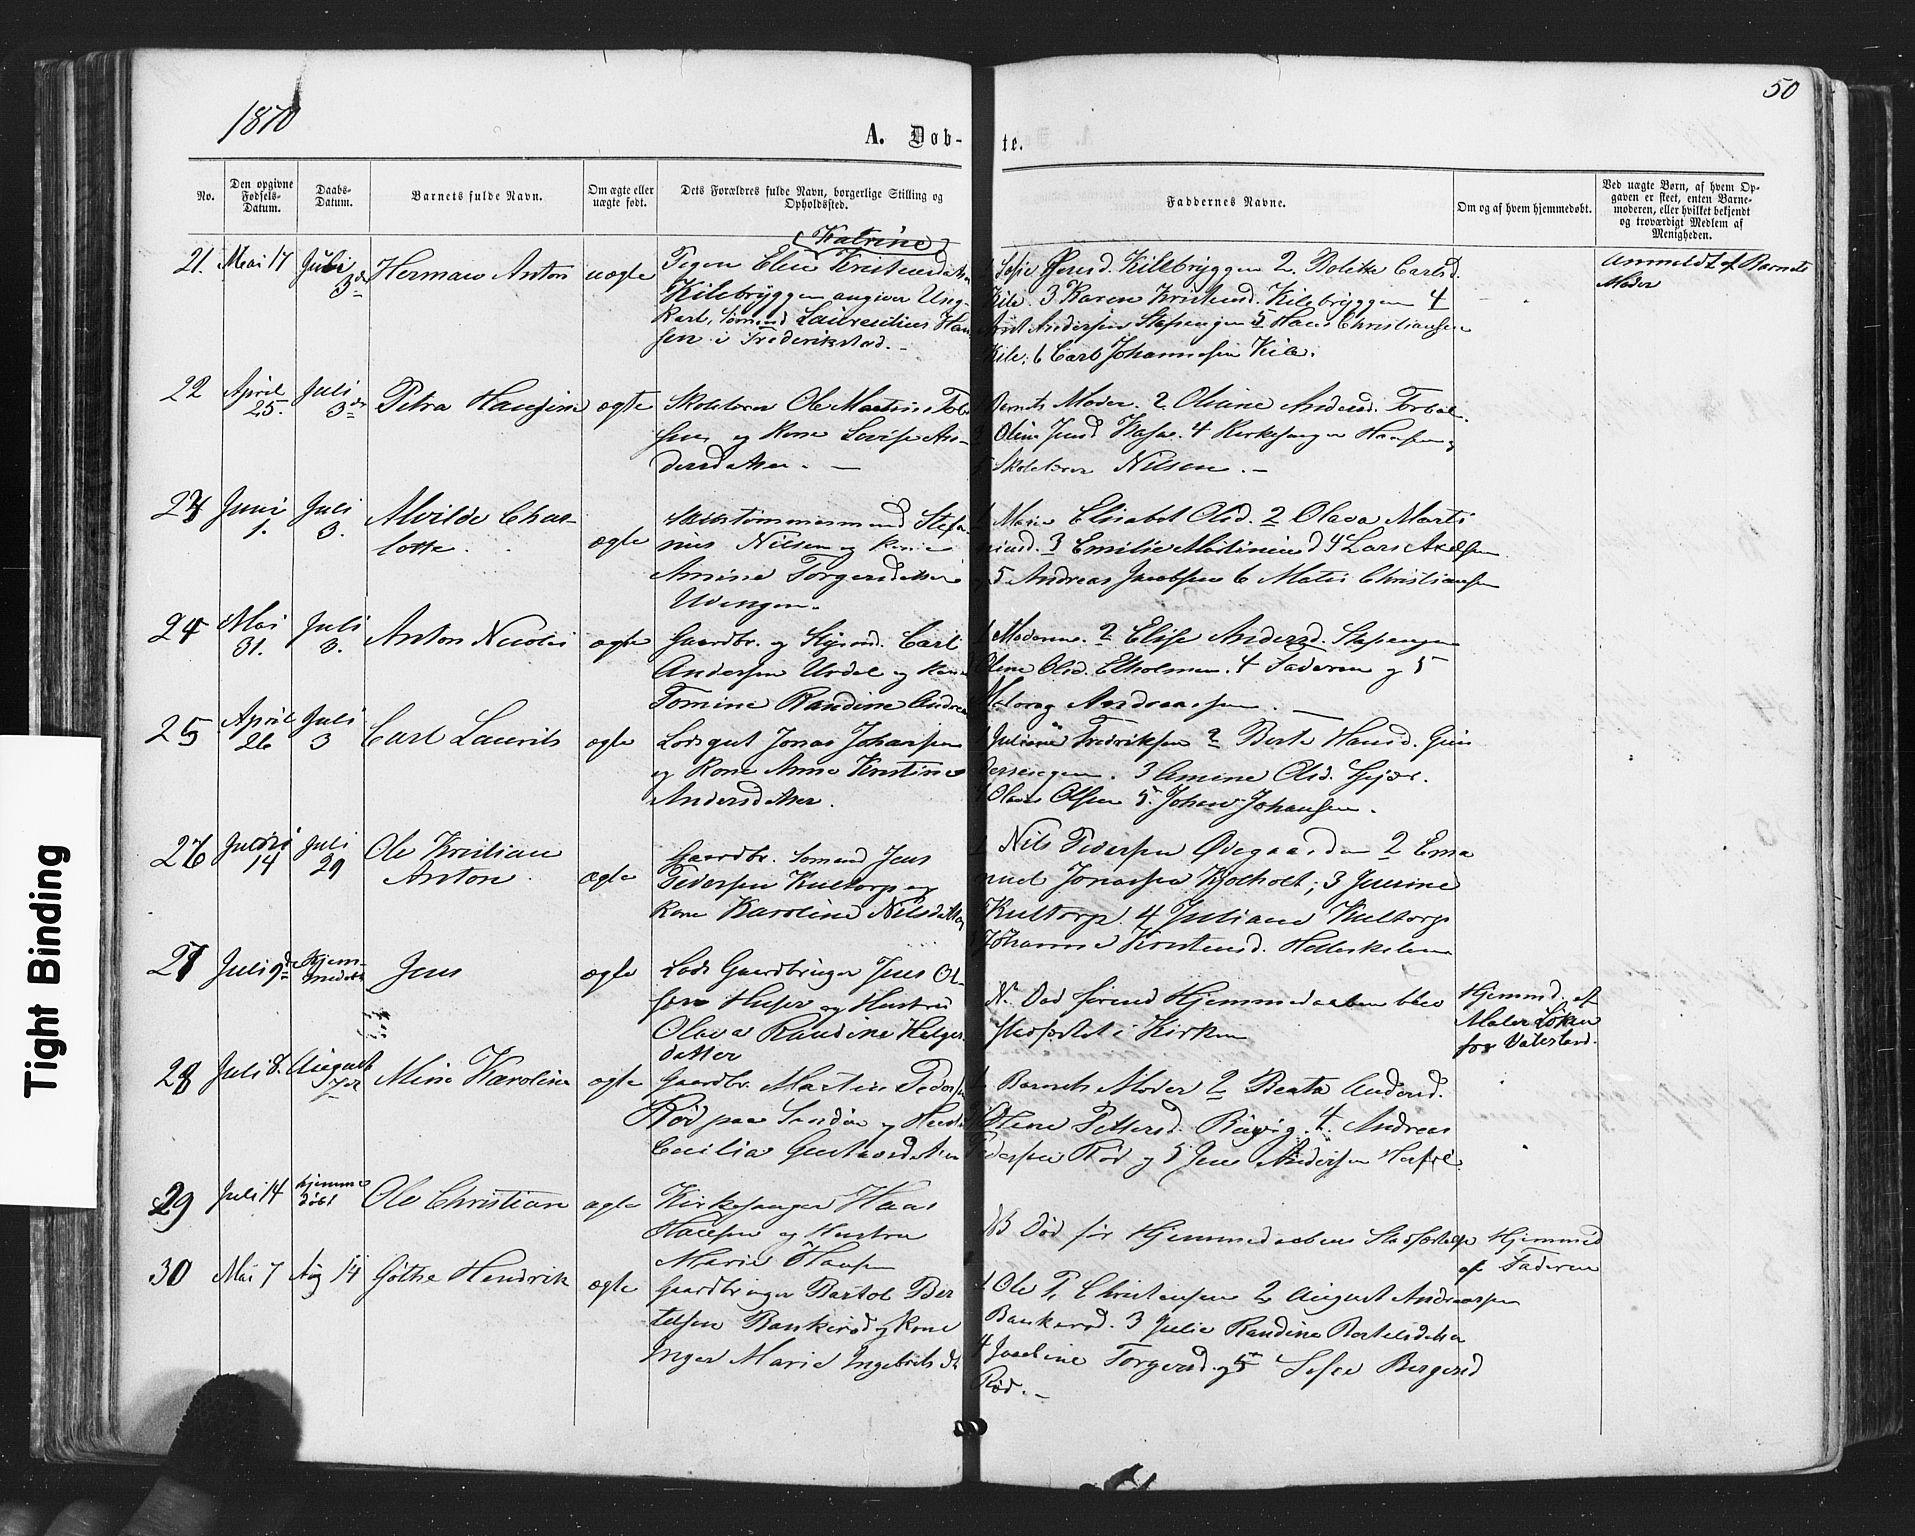 1870
50
A. Døb-
te.
No.
Den opgivne Fødsels-Datum.
Daabs-Datum.
Barnets fulde Navn.
Om ægte eller uægte født.
Dets Forældres fulde Navn, borgerlige Stilling og Opholdssted.
Faddernes Navne.
Om og af hvem hjemmedøbt.
Ved uægte Børn, af hvem Opgaven er skeet, enten Barnemoderen, eller hvilket bekjendt og troværdigt Medlem af Menigheden.
21. Mai 17 Juli 3de Herman Anton uægte
(Katrine)
Pigen Elen Kristensdatter
Kilebryggen angiver Ung-
karl, Sømand Laurentius Han-
sen i Frederikstad.
1 Sofie Kilebryggen 2. Bolette Carlsd.
Kile. 3 Karen Kristensd. Kilebryggen 4
Andersen Stapengen 5 Hans Christiansen
Kile. 6 Carl Johannesen Kile.
Anmeldt af Barnets
Moder
22 April 25. Juli 3de Petra Hansine ægte
Skolelærer Ole Martinus
og Kone Lovise An-
dersdatter.
Barnets Moder. 2. Oliane Andersd.
Oline Jensd 4 Kirkesanger Hansen og
5 Skolelærer Nilsen.
23 Juni 1. Juli 3. Alvilde Char-
lotte. ægte
Skibstømmermand Stefa-
nus Nilsen og Kone
Amine Torgersdatter
Udengen.
1 Marie Elisabet Olsd. 2 Olava Marti
niusd. 3 Emilie 4 Lars Axelsen
5 Andreas Jacobsen 6 Christiansen
24 Mai 31. Juli 3. Anton Nicolai ægte
Gaardbr. og Carl
Andersen og Kone
Tomine Randine
1 Moderen. 2 Elise Andersd. Stapengen
Oline Olsd. Ekholmen. 4 Faderen og 5
Andreassen.
25 April 26 Juli 3 Carl Laurits ægte
Lodsgut Jonas Johansen
og Kone Anne Kristine
Andersdatter.
1 Juliane Fredriksen 2 Berte Hansd.
3 Amine Olsd.
Olaus Olsen 5. Johan Johansen.
26 14 Juli 29 Ole Kristian
Anton ægte
Gaardbr. Sømand Jens
Pedersen Kultorp og
Kone Karoline Nilsdatter
1 Nils Pedersen Ødegaarden 2 Ema
nuel Jonassen Kjølholt; 3 Juline
Kultorp. 4 Juliane Kultorp
Johanne Kristensd. Helleskilen
27 Juli 9de Hjem-
medøbt Jens ægte
Lods Gaardbruger Jens Ol-
sen og Hustru
Olava Randine Helges
datter
N. Død førend Hjemmedaaben blev
stadfæstet i Kirken
Hjemmd. af
Maler Löken
for
28 Juli 8. August 7de Mina Karoline ægte
Gaardbr. Martin Pedersen
Rød paa Sandøen og Hustru
Cecilia Gustavsdatter
1 Barnets Moder 2 Beata Andersd.
Pettersd. 4. Andreas
Pedersen Rød og 5 Jens Andersen
29 Juli 14 hjemme
døbt Ole Christian ægte
Kirkesanger Haas
Hansen og Hustru
Marie Hansen
NB Død før Hjemmedaabens Stadfæstelse
Hjemmed
af Faderen
30 Mai 7 Aug 14 Göthe Hendrik ægte
Gaardbruger Bartol Ber
telsen Bankerød og Kone
Inger Marie Ingebrits dt
1 Ole P. Christensen 2 August Andreassen
Bankerød. 3 Julie Randine Bertelsdatter
4 Josefine Torgersd. og 5 Sofie Bergersd
Rød.
Tight Binding